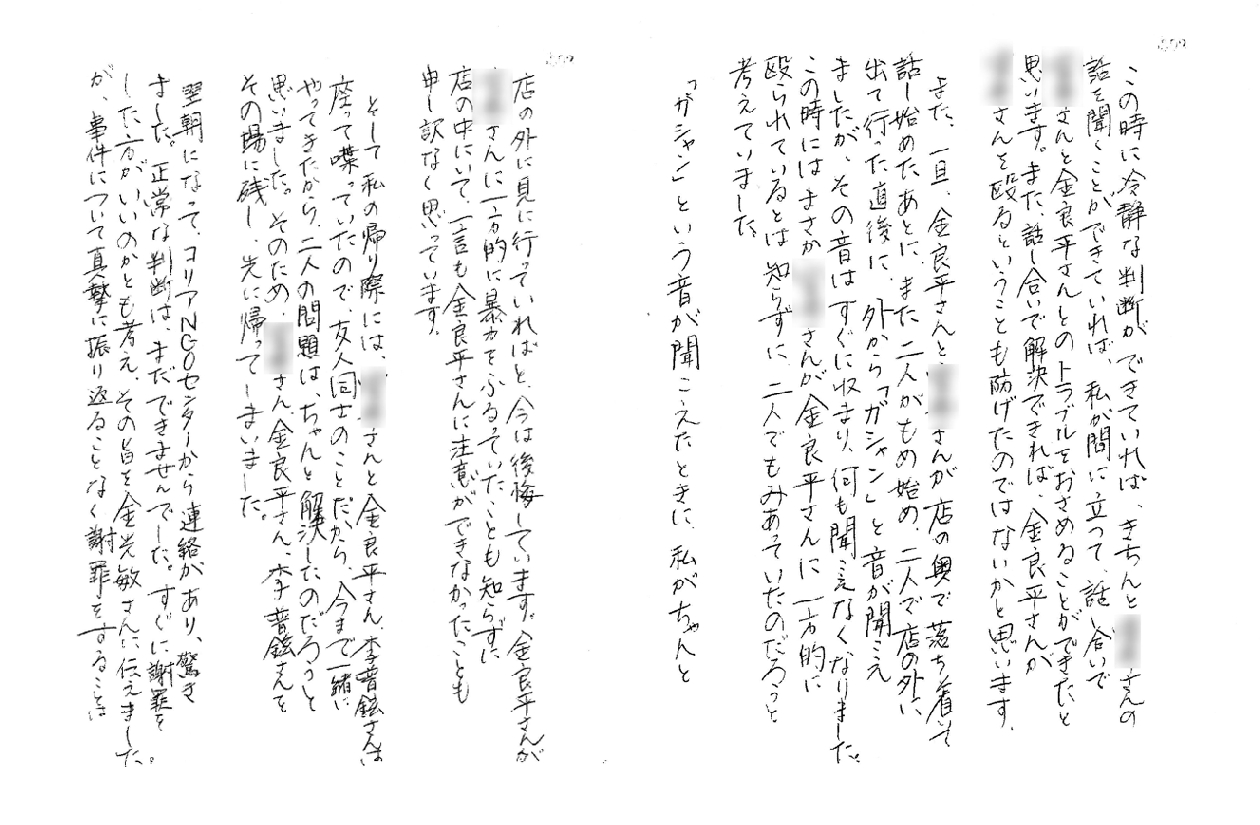 この時に冷静な判断ができていれば、きちんと さんの
話を聞くことができていれば、私が間に立って、話し合いで
さんと金良平さんとのトラブルをおさめることができたと
思います。また、話し合いで解決できれば、金良平さんが
さんを殴るということも防げたのではないかと思います。
また、一旦、金良平さんと、 さんが店の奥で落ち着いて
話し始めたあとに、また二人がもめ始め、二人で店の外に
出て行った直後に、外から「ガシャン」と音が聞こえ
ましたが、その音はすぐに収まり、何も聞こえなくなりました。
この時にはまさか さんが金良平さんに一方的に
殴られているとは知らずに、二人でもみあっていたのだろうと
考えていました。
「ガシャン」という音が聞こえたときに、私がちゃんと
店の外に見に行っていればと、今は後悔しています。金良平さんが
さんに一方的に暴力をふるっていたことも知らずに
店の中にいて、一言も金良平さんに注意ができなかったことも
申し訳なく思っています。
そして私の帰り際には、 さんと金良平さん、李普鉉さんは
座って喋っていたので、友人同士のことだから、今まで一緒に
やってきたから、二人の問題は、ちゃんと解決したのだろうと
思いました。そのため、 さん、金良平さん、李普鉉さんを
その場に残し、先に帰ってしまいました。
翌朝になって、コリアNGOセンターから連絡があり、驚き
ました。正常な判断は、まだできませんでした。すぐに謝罪を
した方がいいのかとも考え、その旨を金光敏さんに伝えました
が、事件について真摯に振り返ることなく謝罪をすることは